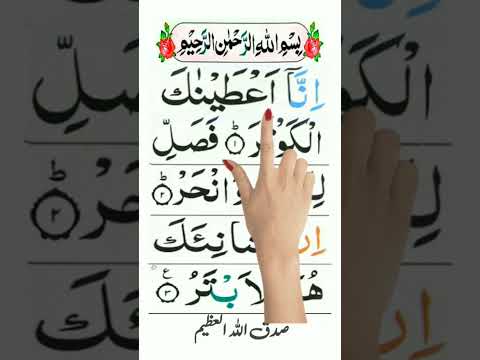 بِسْمِ اللهِ الرَّحْمٰنِ الرَّحِيْمِ
اِنَّاۤ اَعْطَيْنٰكَ
الْكَوْثَرَؕ ۝١ فَصَلِّ
وَانْحَرْؕ ۝٢
شَانِئَكَ
الْاَبْتَرُ ۝٣ ع
صدق الله العظيم